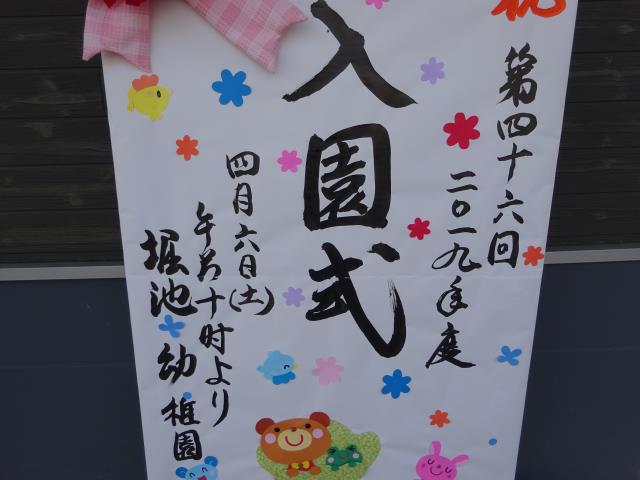 祝
第四十六回
二〇一九年度
入園式
四月六日(土)
午前十時より
堀池幼稚園